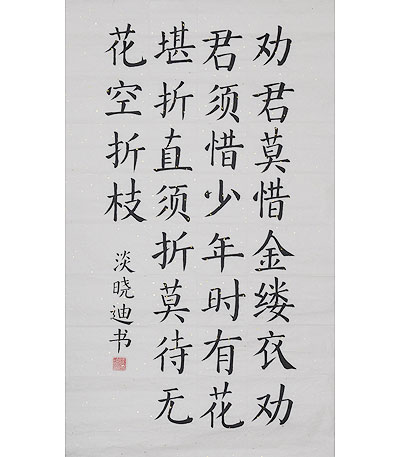 劝君莫惜金缕衣劝
君须惜少年时有花
堪折直须折莫待无
花空折枝
淡晓迪书